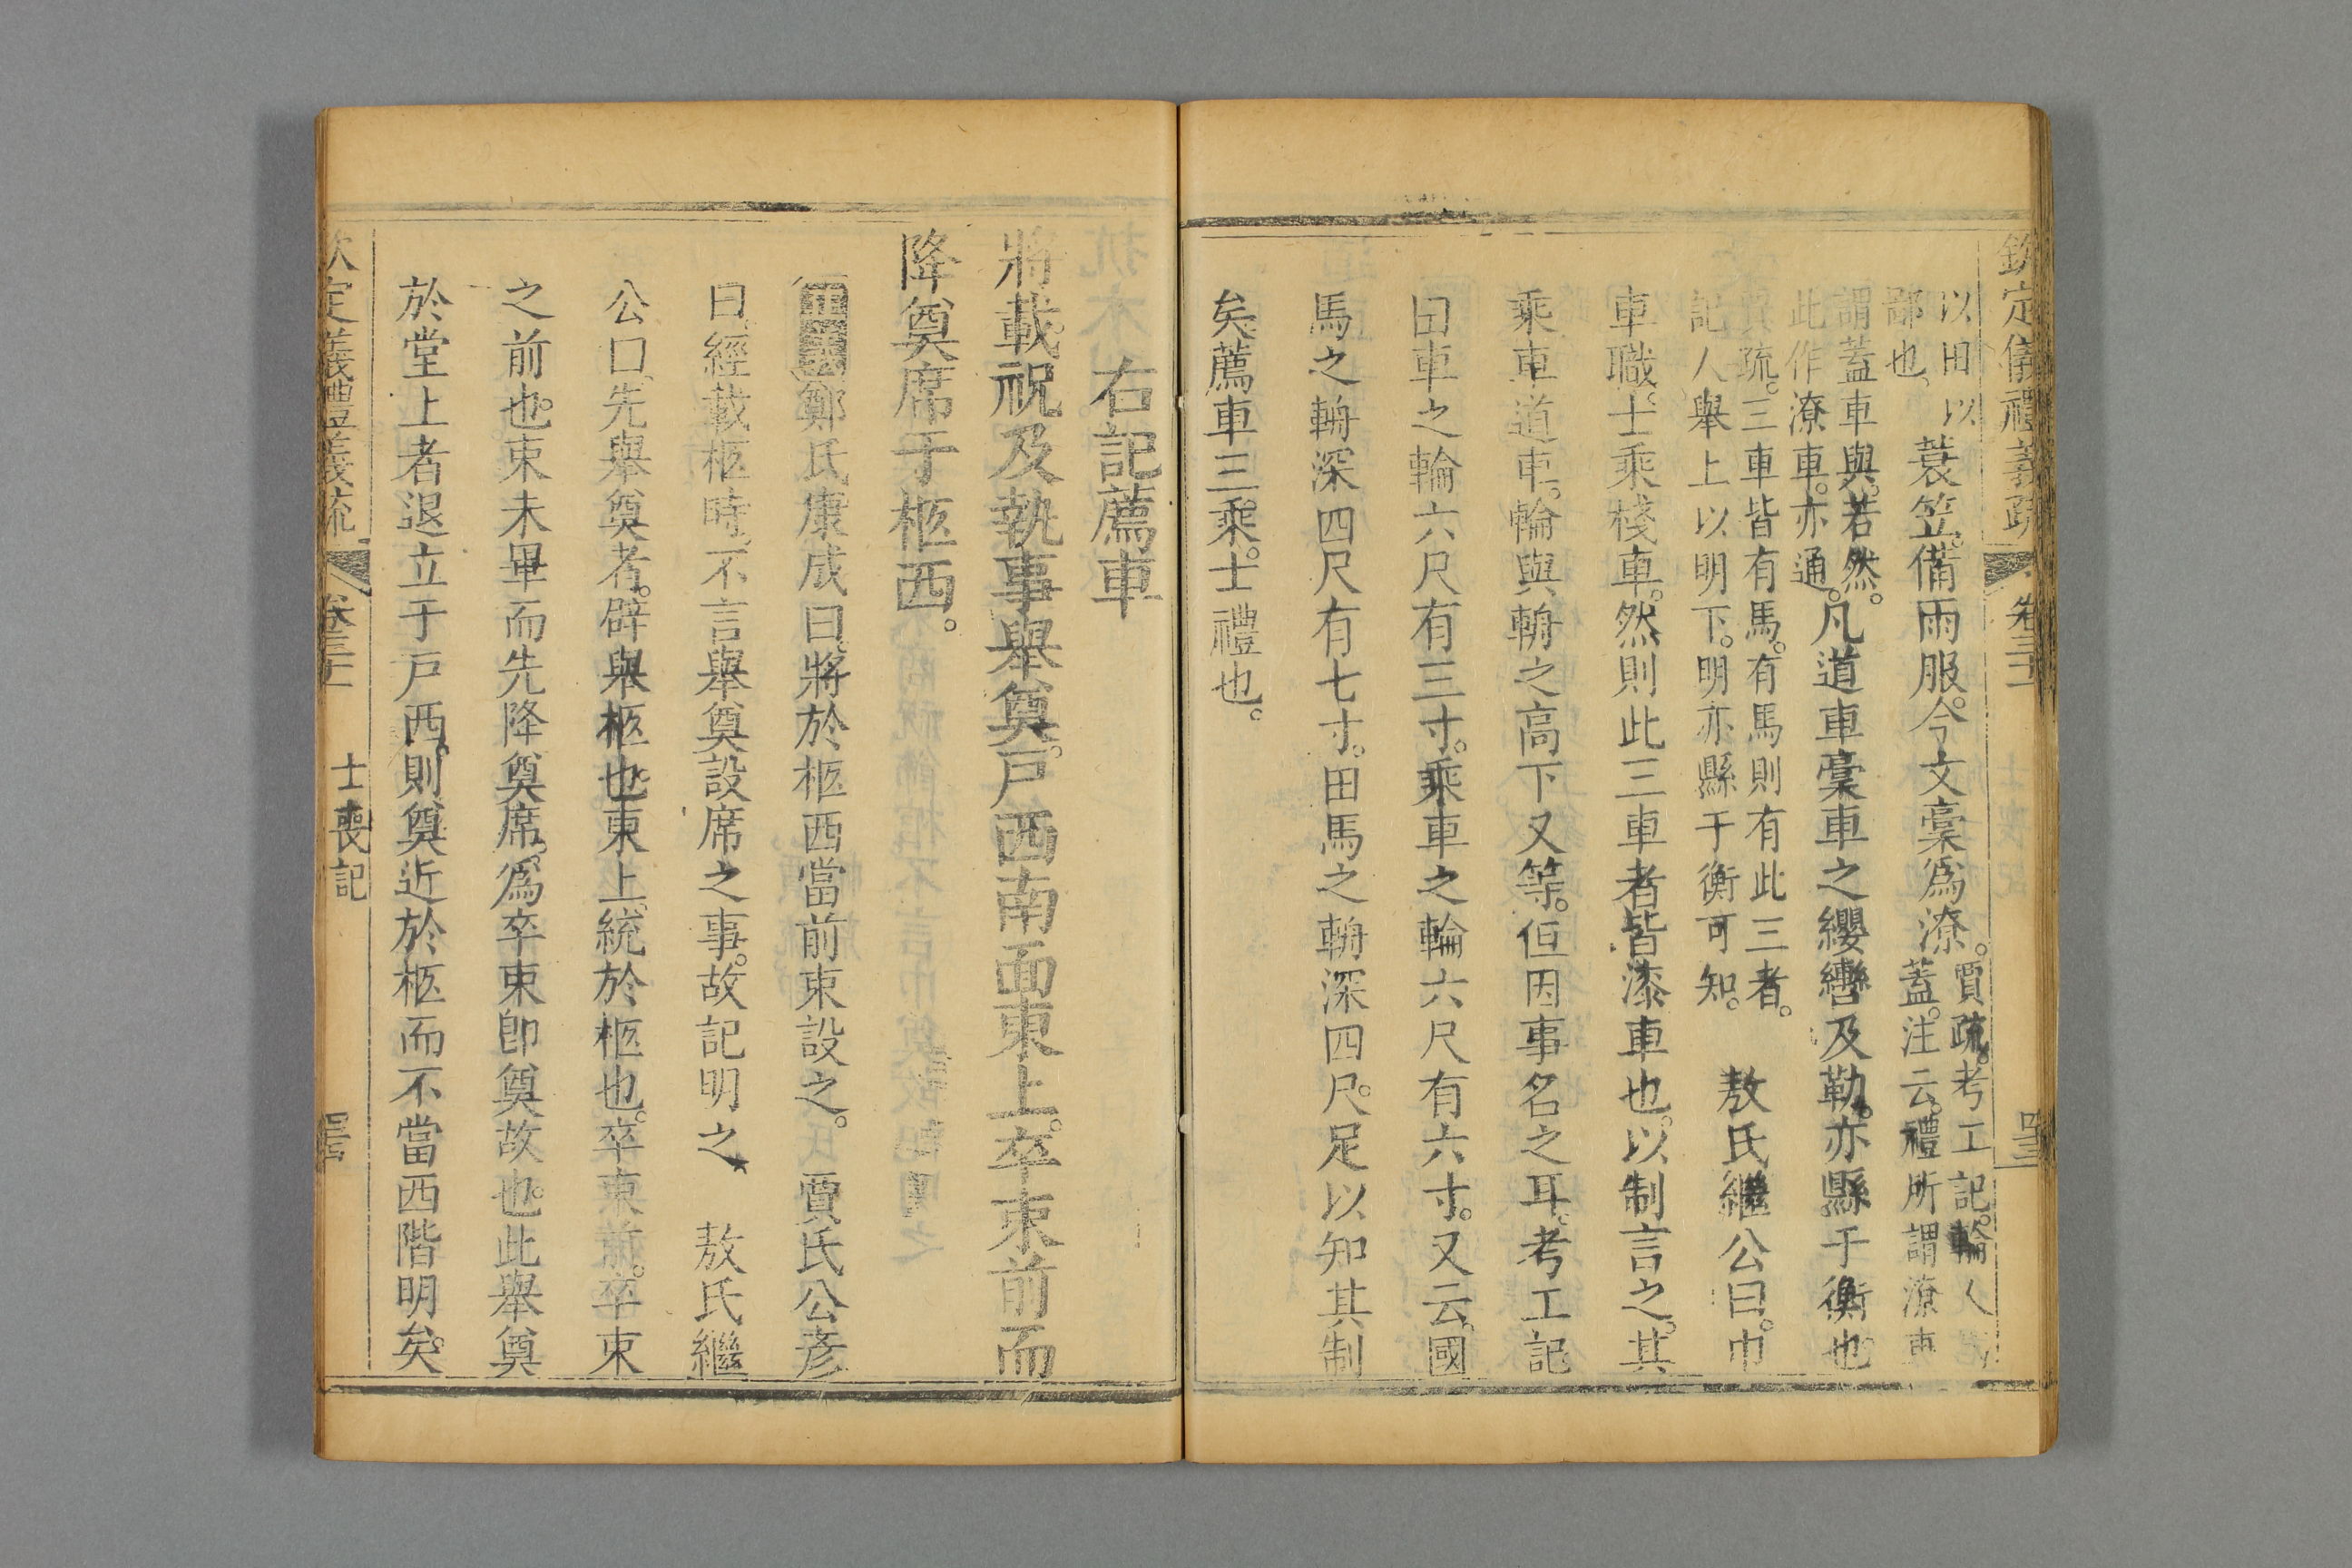 欽定儀禮義疏 卷三十二
以田以
鄙也
蓑笠備雨服今文槀爲潦
賈疏考工記輪人
蓋注云禮所謂潦車
謂蓋車與若然
此作潦車亦通
凡道車槀車之纓轡及勒亦縣于衡也
疏三車皆有馬有馬則有此三者
記人舉上以明下明亦縣于衡可知
敖氏繼公曰巾
車職士乘棧車然則此三車者皆漆車也以制言之其
乘車道車輪與輈之高下又等但因事名之耳考工記
曰車之輪六尺有三寸乘車之輪六尺有六寸又云國
馬之輈深四尺有七寸田馬之輈深四尺足以知其制
矣薦車三乘士禮也
右記薦車
將載祝及執事舉奠戶西南面東上卒束前而
降奠席于柩西
正義鄭氏康成曰將於柩西當前束設之 賈氏公彥
曰經載柩時不言舉奠設席之事故記明之 敖氏繼
公曰先舉奠者辟舉柩也東上統於柩也卒束前卒束
之前也束未畢而先降奠席爲卒束卽奠故也此舉奠
於堂上者退立于戶西則奠近於柩而不當西階明矣
欽定義禮義疏 卷三十二 士喪記